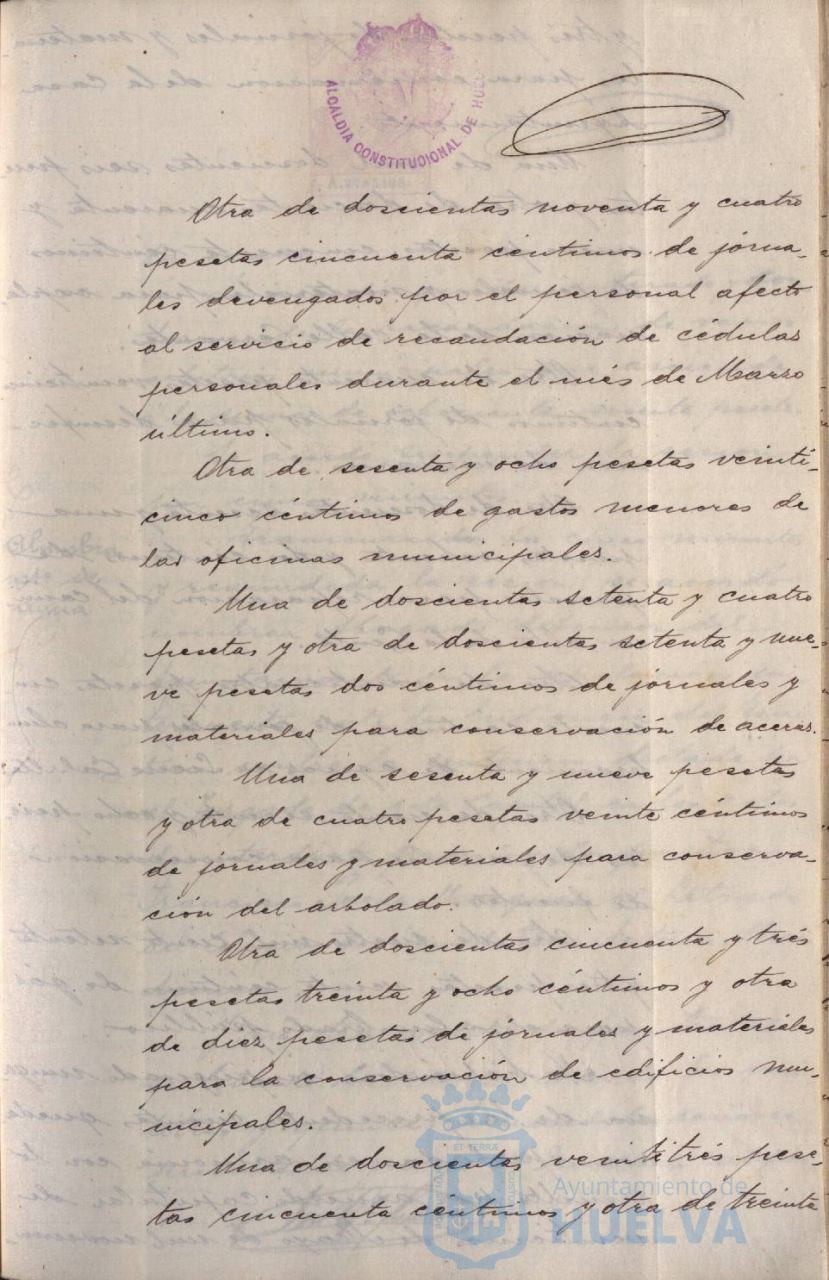 ALCALDIA CONSTITUCIONAL DE HUEL
Otra de doscientas noventa y cuatro
pesetas cincuenta céntimos de jorna-
les devengados por el personal afecto
al servicio de recaudación de cédulas
personales durante el més de Marzo
último.
Otra de sesenta y ocho pesetas veinti-
cinco céntimos de gastos menores de
las oficinas municipales.
Una de doscientas setenta y cuatro
pesetas y otra de doscientas setenta y nue-
ve pesetas dos céntimos de jornales y
materiales para conservación de aceras.
Una de sesenta y nueve pesetas
y otra de cuatro pesetas veinte céntimos
de jornales y materiales para conserva-
ción del arbolado.
Otra de doscientas cincuenta y trés
pesetas treinta y ocho céntimos y otra
de diez pesetas de jornales y materiales
para la conservación de edificios mu-
nicipales.
Una de doscientas veintitrés pese-
tas cincuenta céntimos y otra de treinta
Ayuntamiento de
HUELVA